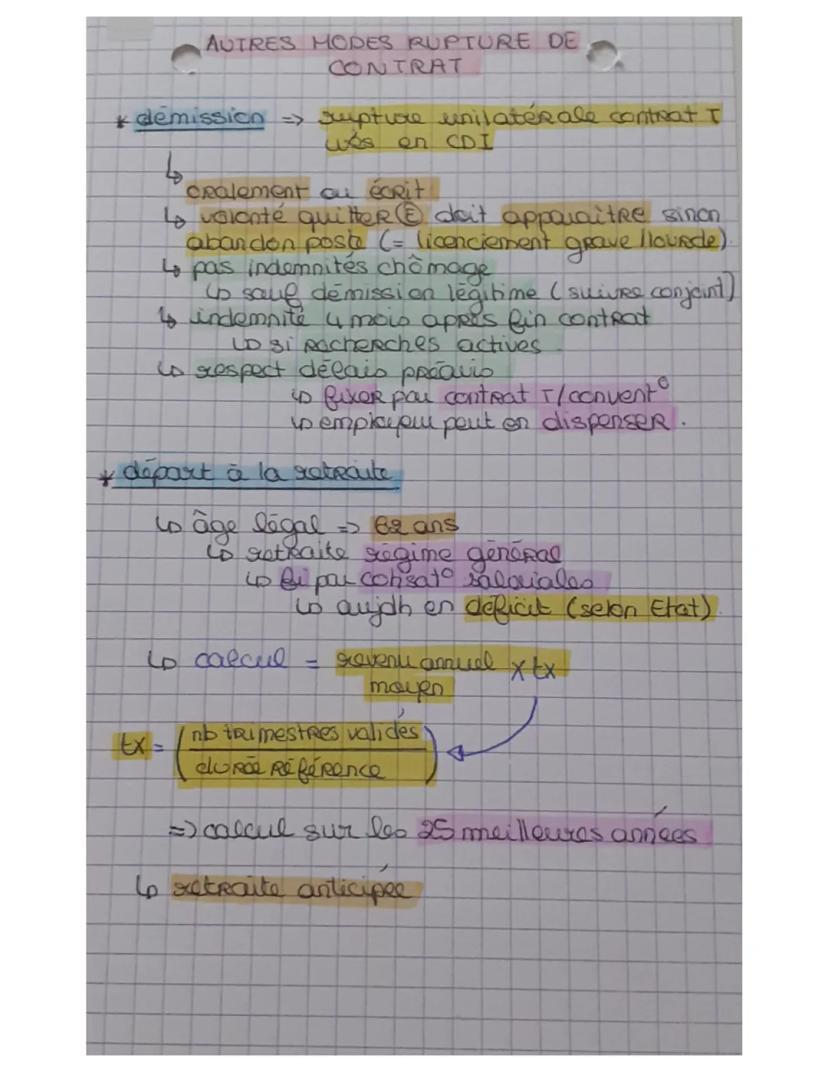 AUTRES MODES RUPTURE DE
CONTRAT
* démission => rupture unilatérale contrat T
en CDI
↳ oralement ou écrit
↳ volonté quitter Ⓔ doit apparaître sinon
abandon poste (= licenciement grave/lourde).
↳ pas indemnités chômage
↳ sauf démission légitime (suivre conjoint)
↳ indemnité 4 mois après fin contrat
↳ si recherches actives.
↳ respect délais préavis
↳ fixer par contrat T/convent°
↳ employeur peut en dispenser.
* départ à la retraite
↳ âge légal => 62 ans
↳ retraite régime général
↳ fi par cotisat° salariales
↳ aujdh en déficit (selon Etat)
↳ calcul = revenu annuel x tx
moyen
tx = (nb trimestres validés
durée référence)
=> calcul sur les 25 meilleures années
↳ retraite anticipée